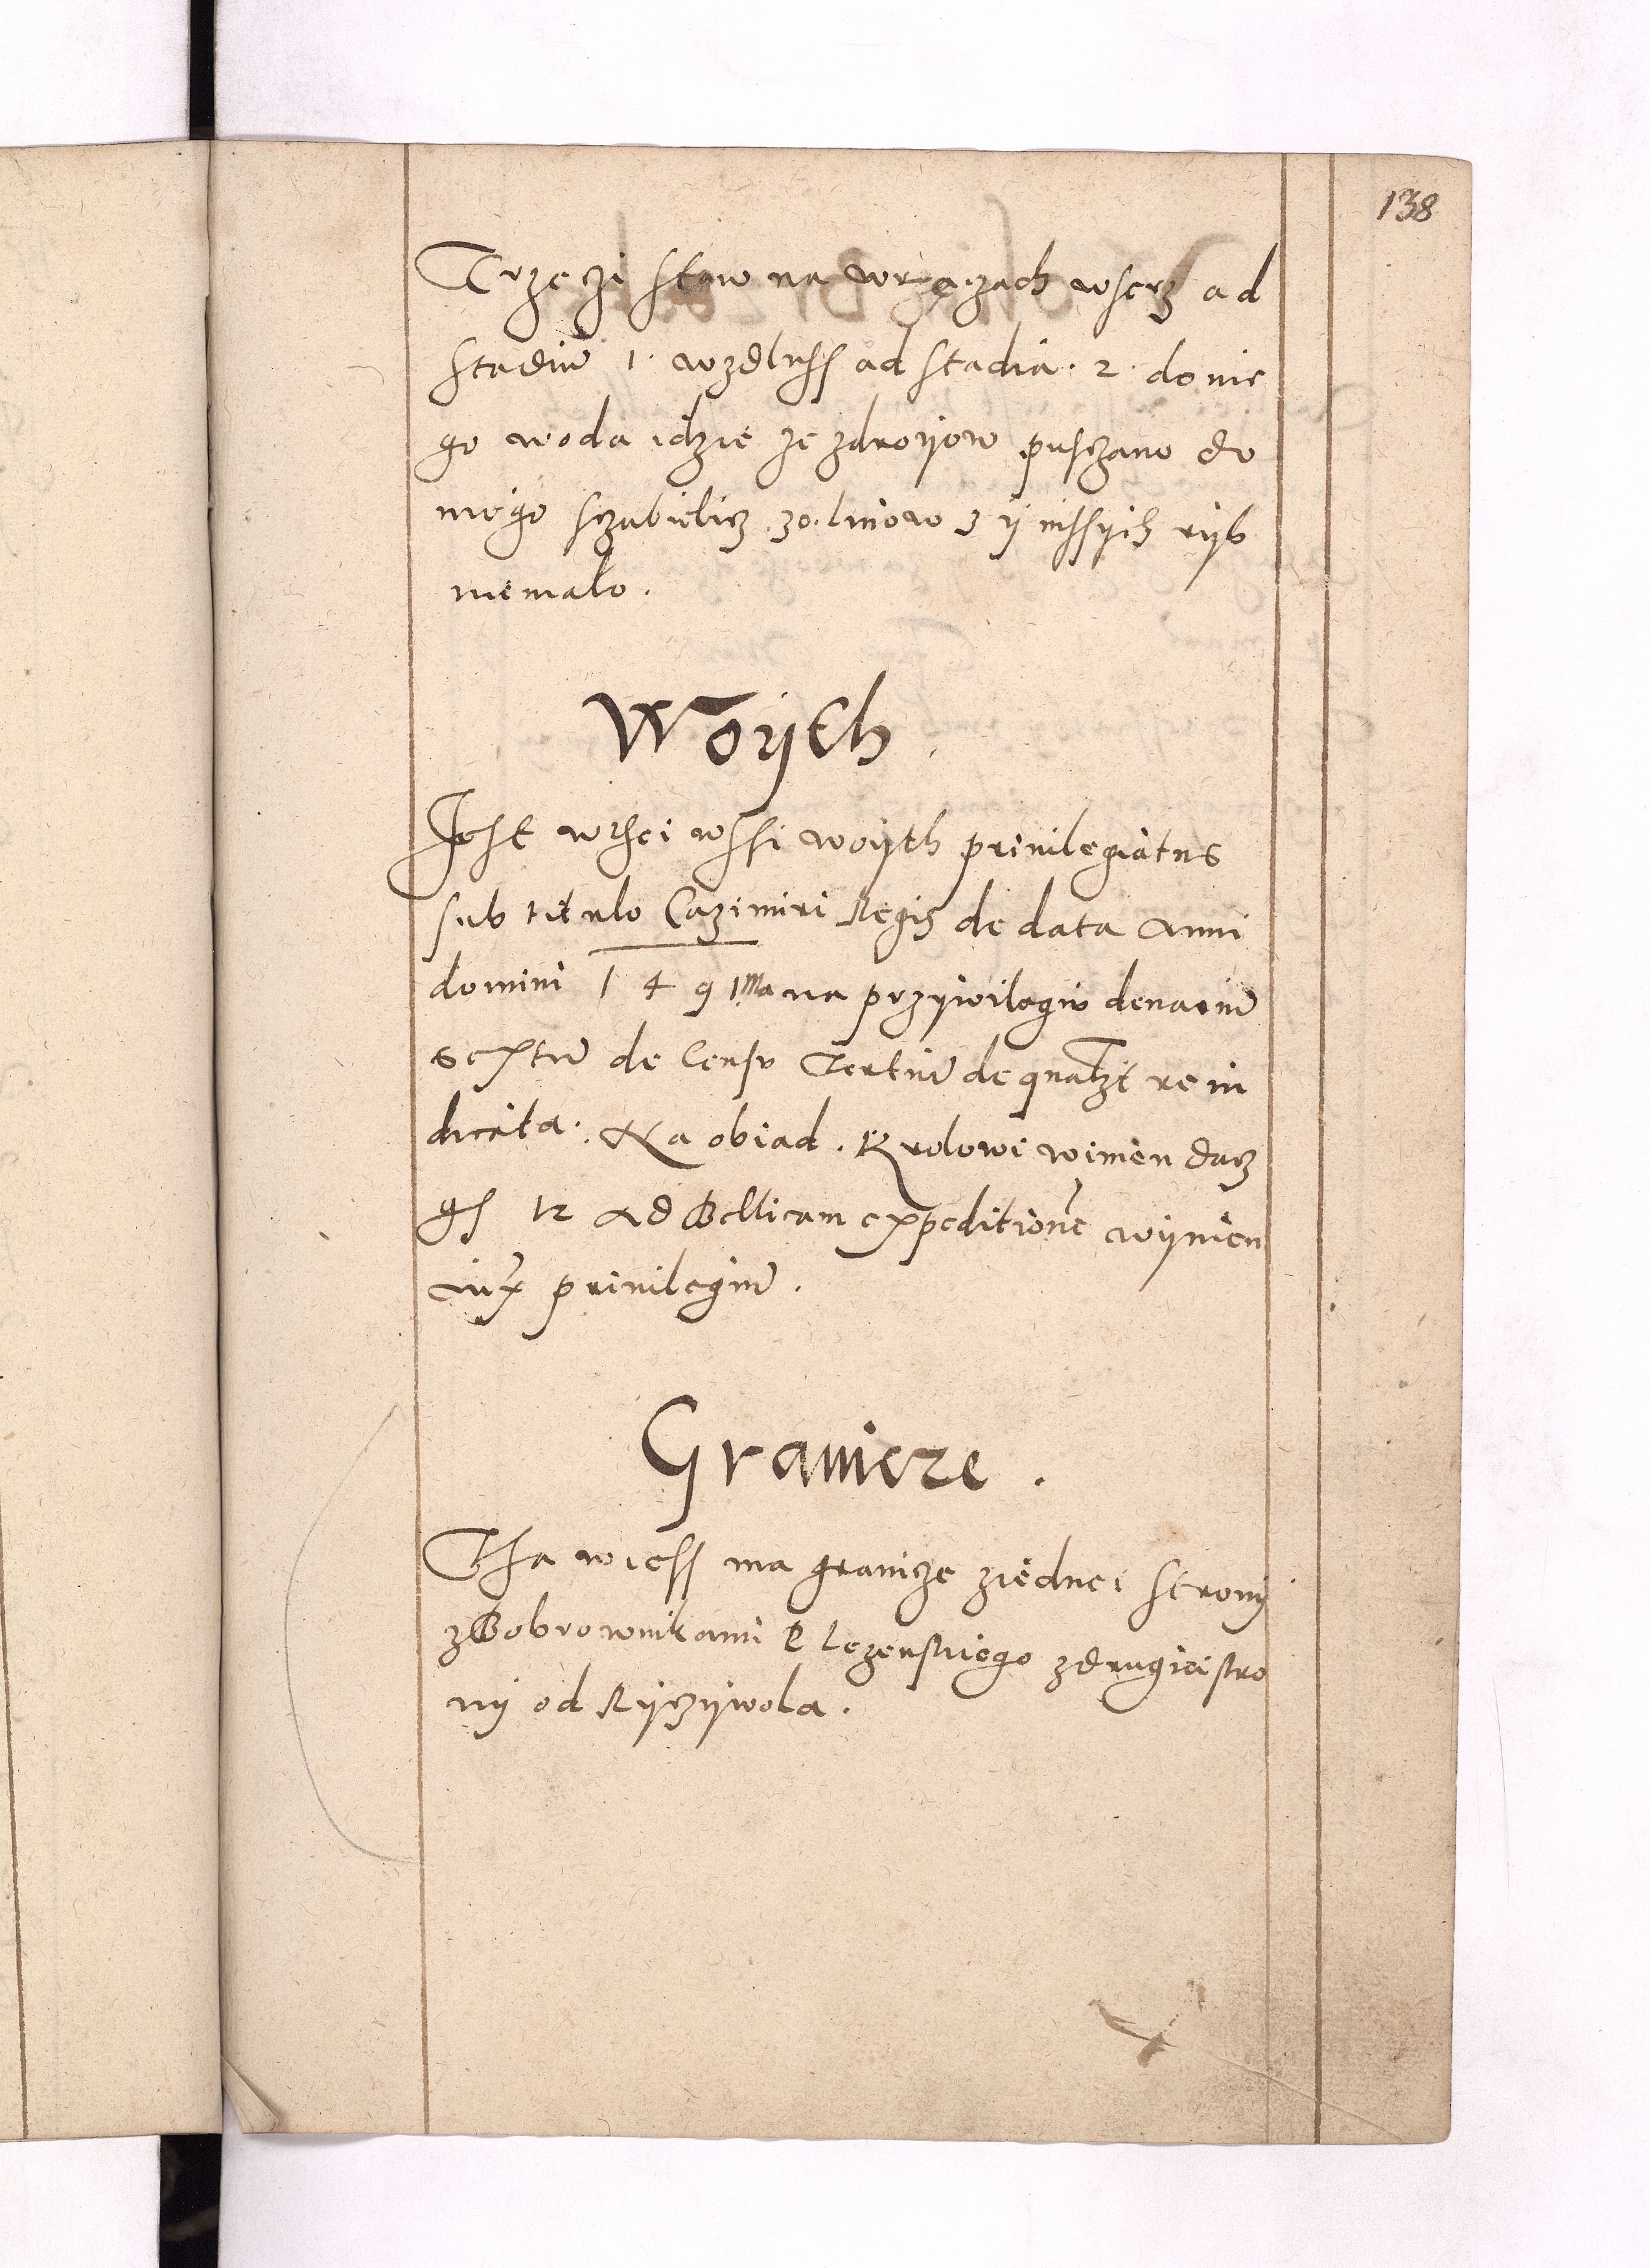 138
Trzeczi staw na wrzączach wserz ad
stadiū 1. wzdluss ad stadia . 2 . do nie
go woda idzie ze zdroyow pusczano do
niego sczubielicz .30. linow 3 ÿ inssÿch rÿb
niemało .
Woÿth
Jest wthei wssi woÿth priuilegiatus
sub titulo Cazimiri Regis de data Anni
domini 1 4 9 1 Ma na przÿwilegiū denariū
sextū de censu Tertiū de qualzt re in
dicata . Na obiad . Krolowi winien dacz
gs 12 Ad Bellicam expeditionē wÿnien
iux priuilegiū .
Granicze .
Tha wiess ma granicze ziednei stronÿ
z Bobrownikami zdrugiei stro
nÿ od Rÿczÿwola .